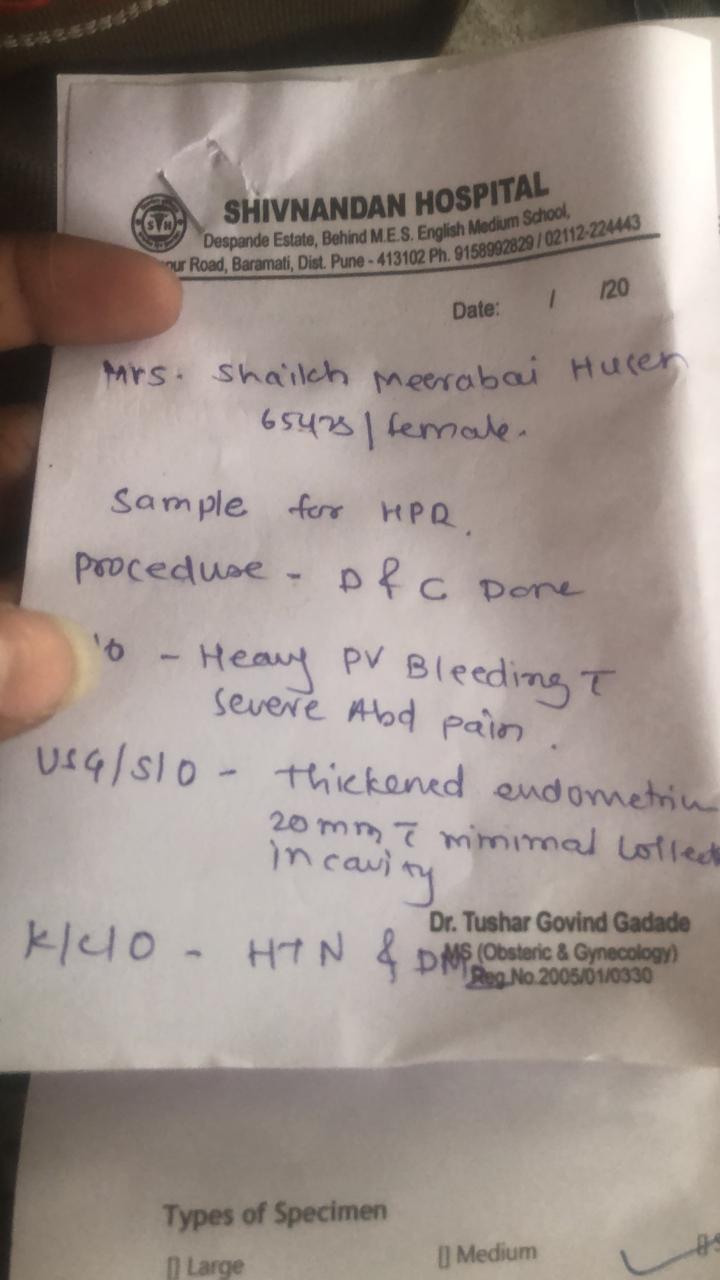 SHIVNANDAN HOSPITAL
SVH
Despande Estate, Behind M.E.S. English Medium School,
Road, Baramati, Dist. Pune - 413102 Ph. 9158992829 / 02112-224443
Date: / /20
Mrs. Shaikh Meerabai Husen
65yrs / female.
Sample for HPR.
Procedure - D & C Done
- Heavy PV Bleeding c̄
severe Abd pain.
USG/S/O - thickened endometriu
20mm c̄ minimal collect
in cavity
K/C/O - HTN & DM
Dr. Tushar Govind Gadade
MS (Obsteric & Gynecology)
Reg.No.2005/01/0330
Types of Specimen
[] Large [] Medium